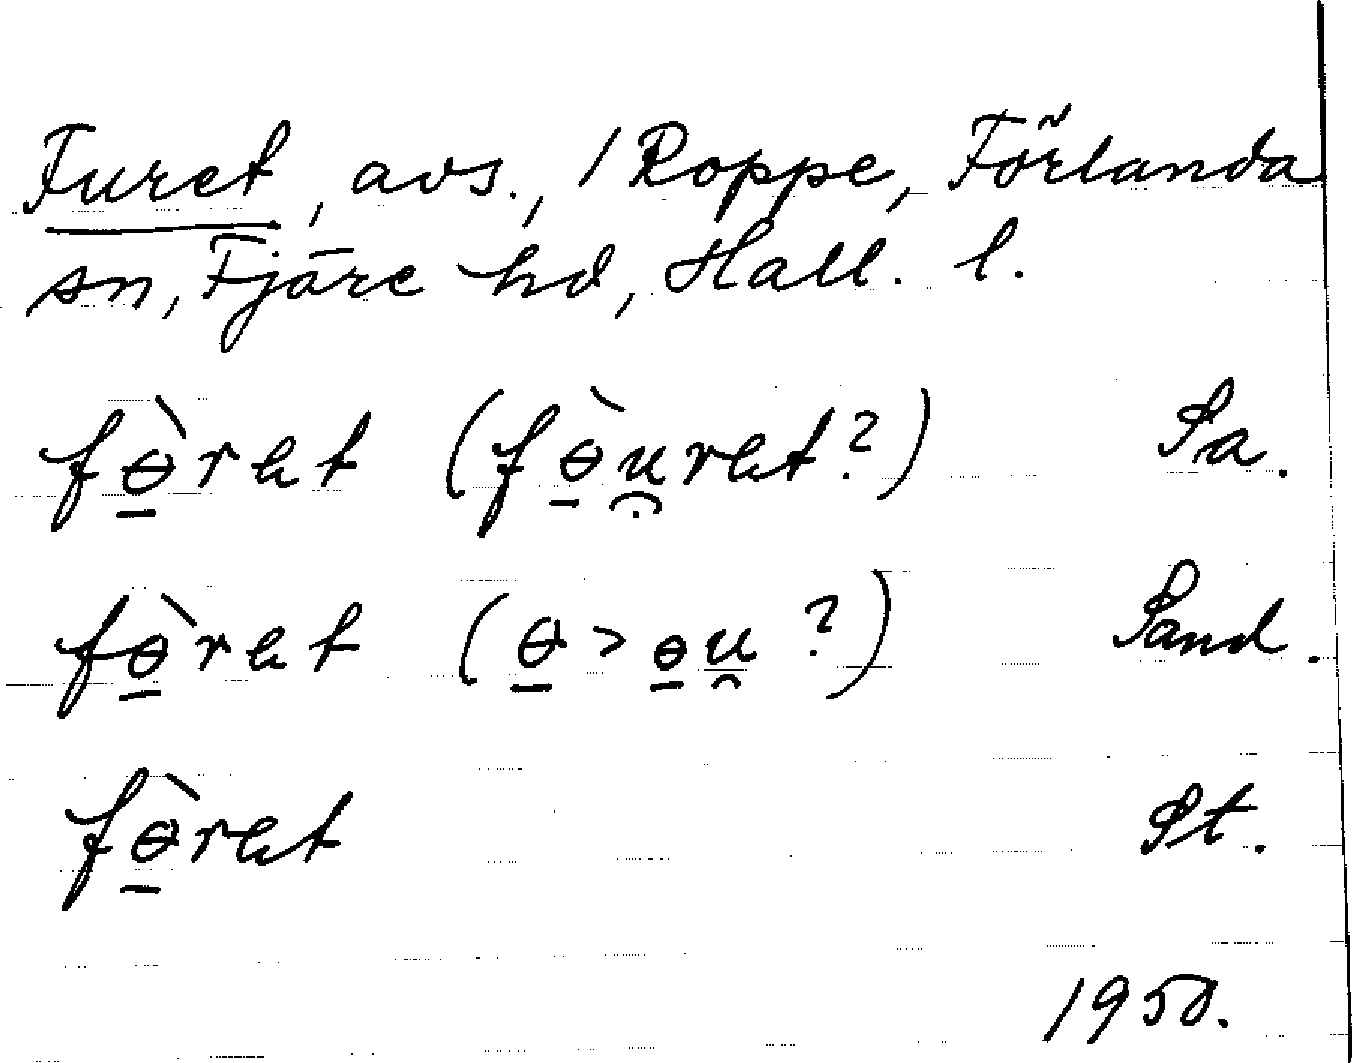 Furet, avs., 1 Roppe, Förlanda
sn, Fjäre hd, Hall. l.
fɵ̠̀ret (fɵ̠̀u̯ret?) Sa.
fɵ̠̀ret (ɵ̠ > ɵ̠u̯ ?) Sand.
fɵ̠̀ret St.
1950.